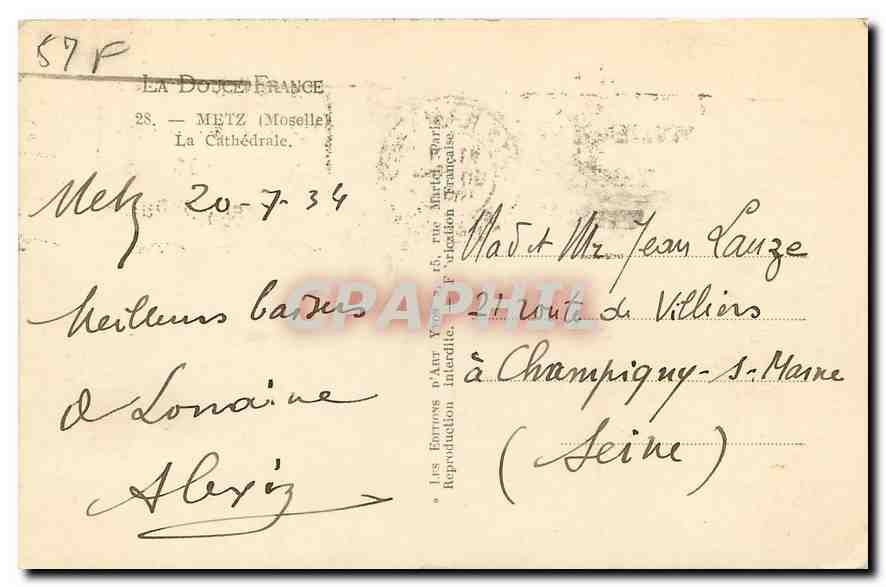 57 F
LA DOUCE FRANCE
28. — METZ (Moselle)
La Cathédrale.
Metz 20-7-34
Meilleurs baisers
de Lorraine
Alexis
* LES EDITIONS D'ART YVON, 15, rue Martel, Paris
Reproduction interdite. Fabrication Française
Mad et Mr Jean Lauze
21 route de Villiers
à Champigny-s-Marne
(Seine)
CPAPHIL